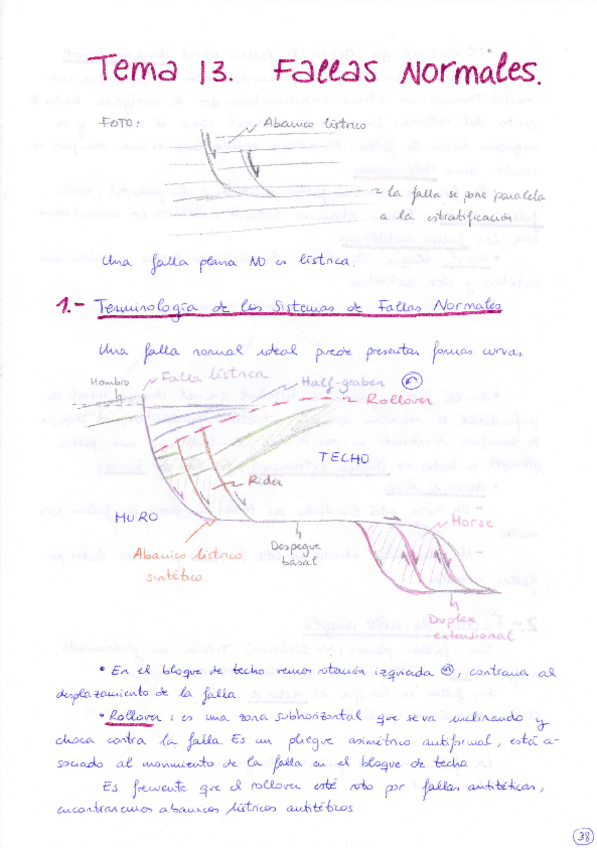 Tema 13. Fallas Normales.
FOTO:
Abanico lístrico
la falla se pone paralela
a la estratificación
Una falla plana NO es lístrica.
1.- Terminología de los Sistemas de Fallas Normales
Una falla normal ideal puede presentar formas curvas.
Hombro
Falla lístrica
Half-graben
Rollover
TECHO
Rider
MURO
Horse
Despegue
basal
Abanico lístrico
sintético
Duplex
extensional
• En el bloque de techo vemos rotación izquierda, contraria al
desplazamiento de la falla.
• Rollover: es una zona subhorizontal que se va inclinando y
choca contra la falla. Es un pliegue asimétrico antiformal, está a-
sociado al movimiento de la falla en el bloque de techo.
Es frecuente que el rollover esté roto por fallas antitéticas,
encontraremos abanicos lístricos antitéticos
38